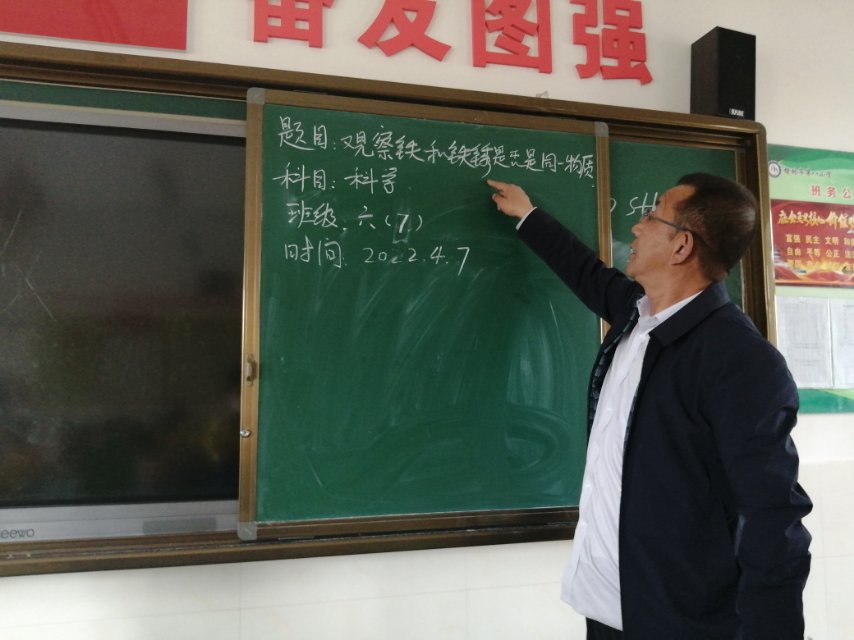 奋发图强
题目:观察铁和铁锈是否是同一物质
科目:科学
班级:六(7)
时间:2022.4.7
seewo
班务公
富强 民主 文明
自由 平等 公正